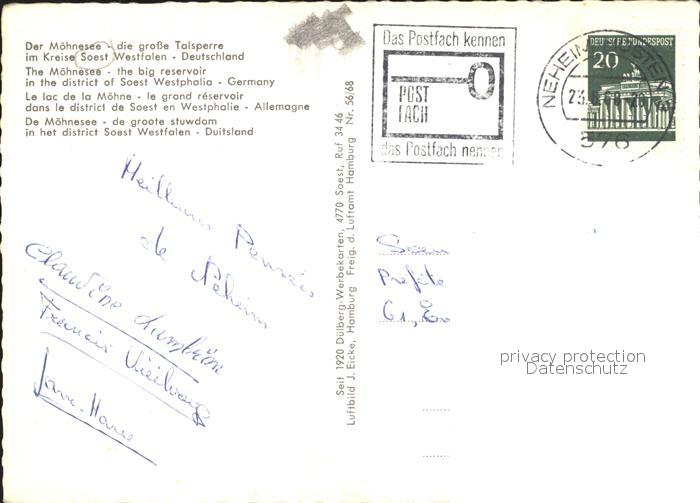 Der Möhnesee - die große Talsperre
im Kreise Soest Westfalen - Deutschland
The Möhnesee - the big reservoir
in the district of Soest Westphalia - Germany
Le lac de la Möhne - le grand réservoir
dans le district de Soest en Westphalie - Allemagne
De Möhnesee - de groote stuwdam
in het district Soest Westfalen - Duitsland
Das Postfach kennen
POST
FACH
das Postfach nennen
DEUTSCHE BUNDESPOST
20
NEHEIM
576
de Neheim
Claudine
Francis
Seit 1920 Dülberg-Werbekarten, 4770 Soest, Ruf 34 46
Luftbild J. Eicke, Hamburg Freig. d. Luftamt Hamburg Nr. 56/68
61,
privacy protection
Datenschutz